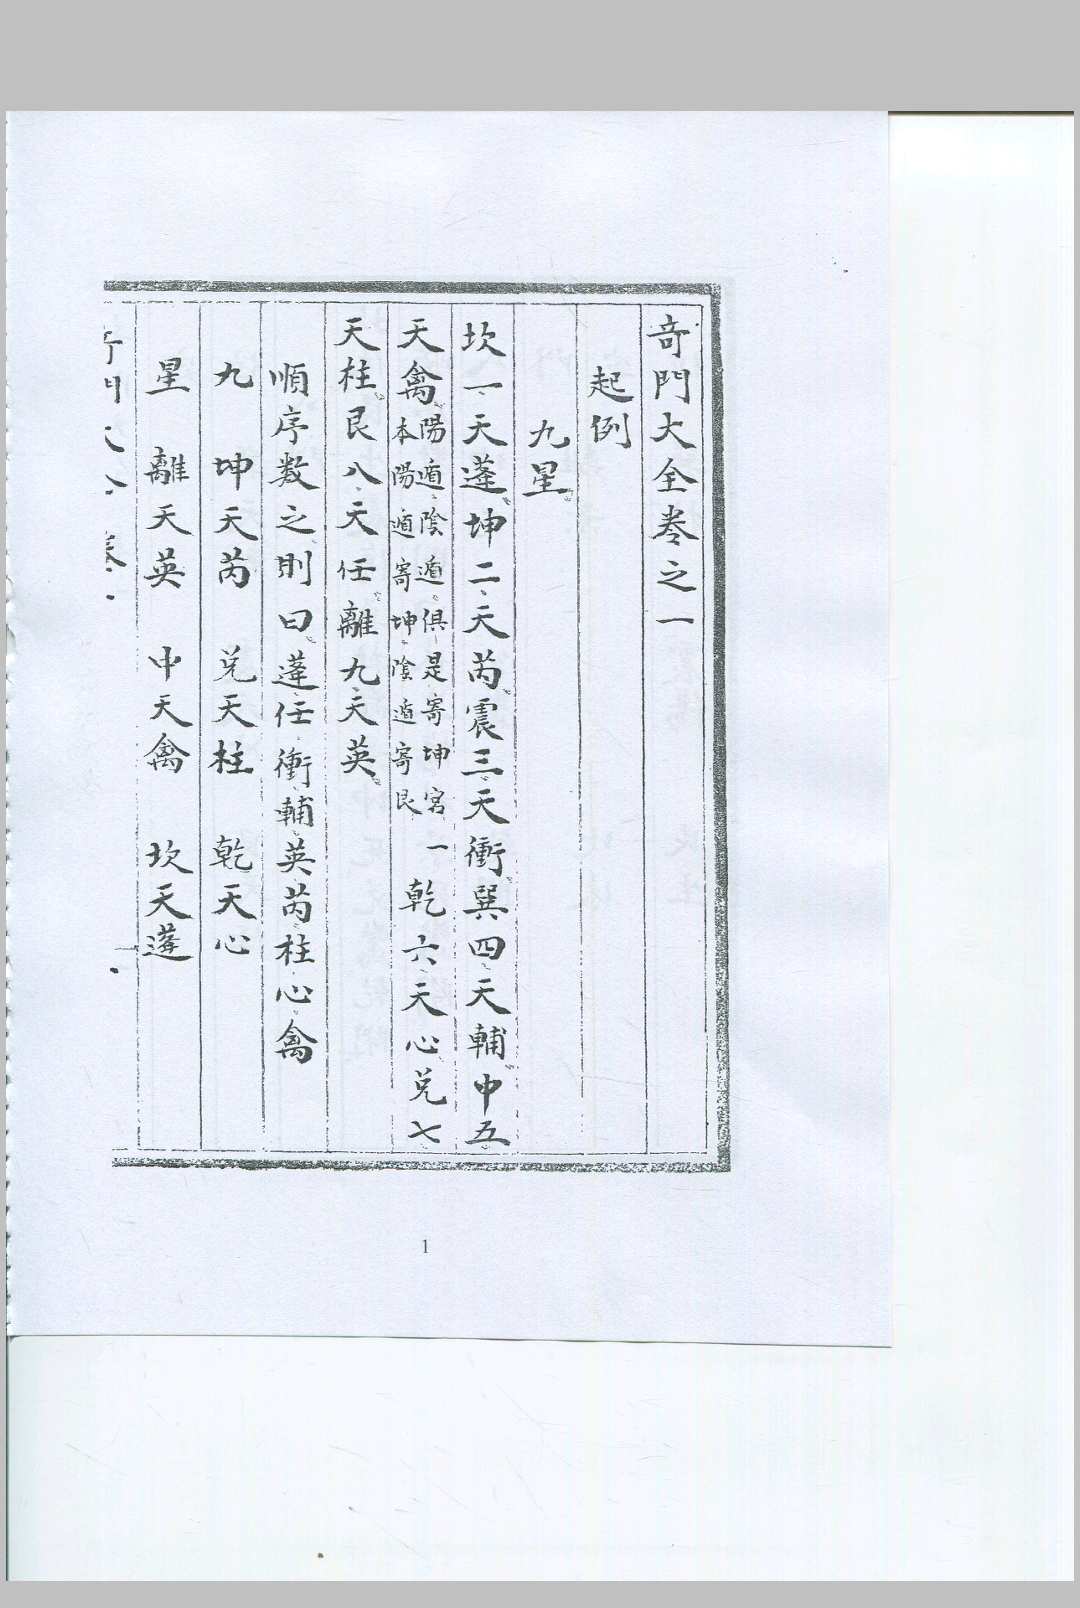 奇門大全卷之一
起例
九星
坎一天蓬坤二天芮震三天衝巽四天輔中五
天禽陽遁陰遁俱是寄坤宮一本陽遁寄坤陰遁寄艮乾六天心兌七
天柱艮八天任離九天英
順序数之則曰蓬任衝輔英芮柱心禽
九 坤天芮 兌天柱 乾天心
星 離天英 中天禽 坎天蓬
1